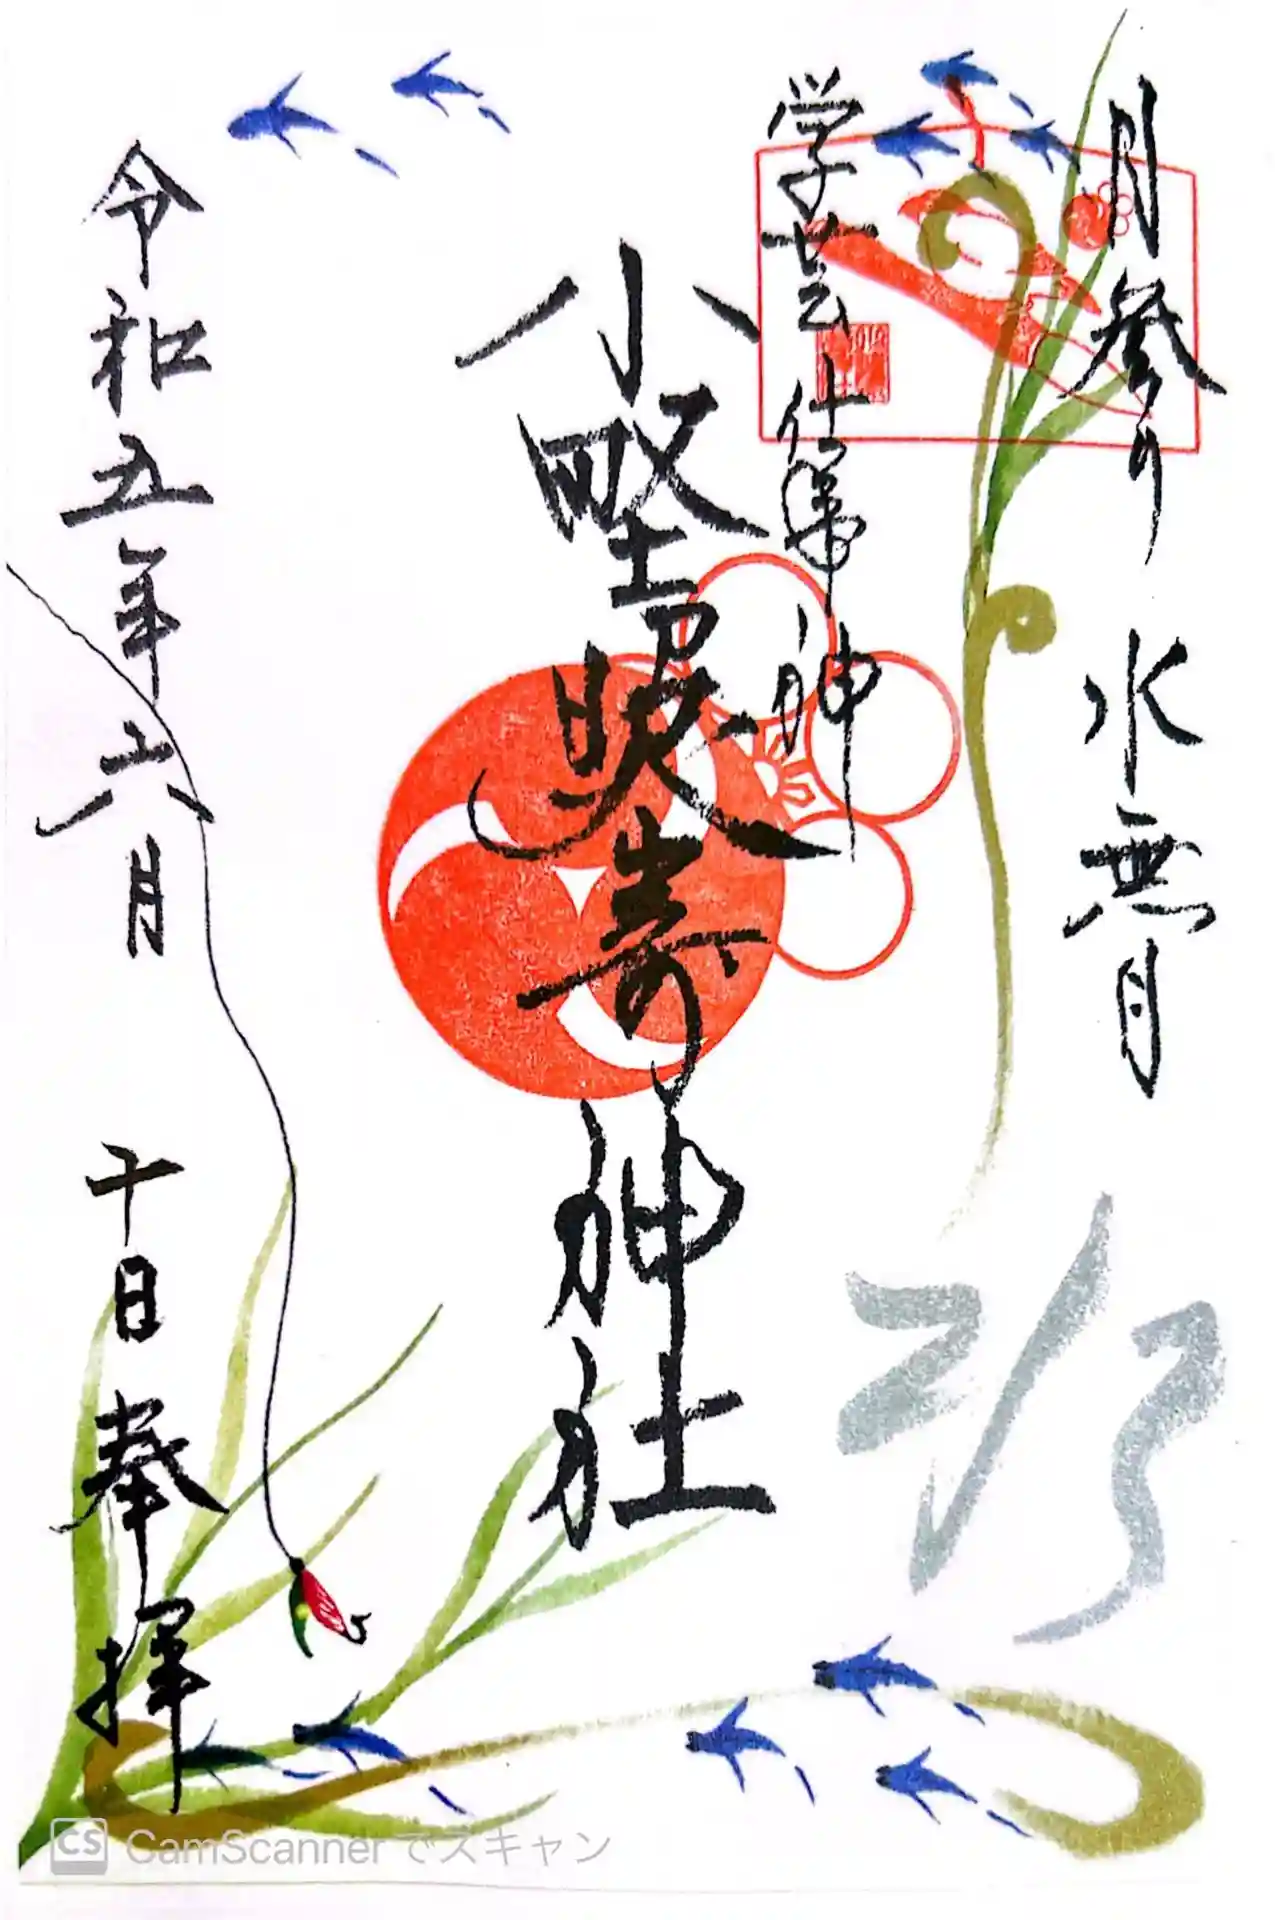 月参り 水無月
学芸 仕事神
小野照崎神社
令和五年六月 十日 奉拝
CS CamScannerでスキャン